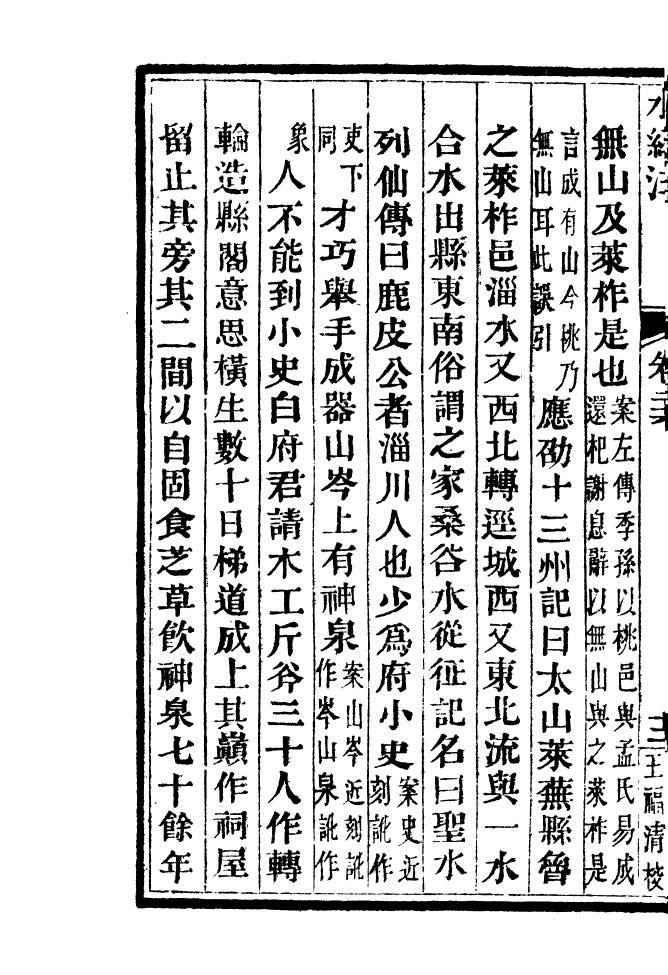 水經注 卷二十 王福清校
無山及萊柞是也案左傳季孫以桃邑與孟氏易成
還杷謝息辭以無山與之萊柞是
言成有山今桃乃
無山耳此誤引應劭十三州記曰太山萊蕪縣魯
之萊柞邑淄水又西北轉逕城西又東北流與一水
合水出縣東南俗謂之家桑谷水從征記名曰聖水
列仙傳曰鹿皮公者淄川人也少爲府小史案史近
刻訛作
吏下
同才巧舉手成器山岑上有神泉案山岑近刻訛
作岑山泉訛作
象人不能到小史白府君請木工斤斧三十人作轉
輪造縣閣意思橫生數十日梯道成上其巔作祠屋
留止其旁其二間以自固食芝草飮神泉七十餘年